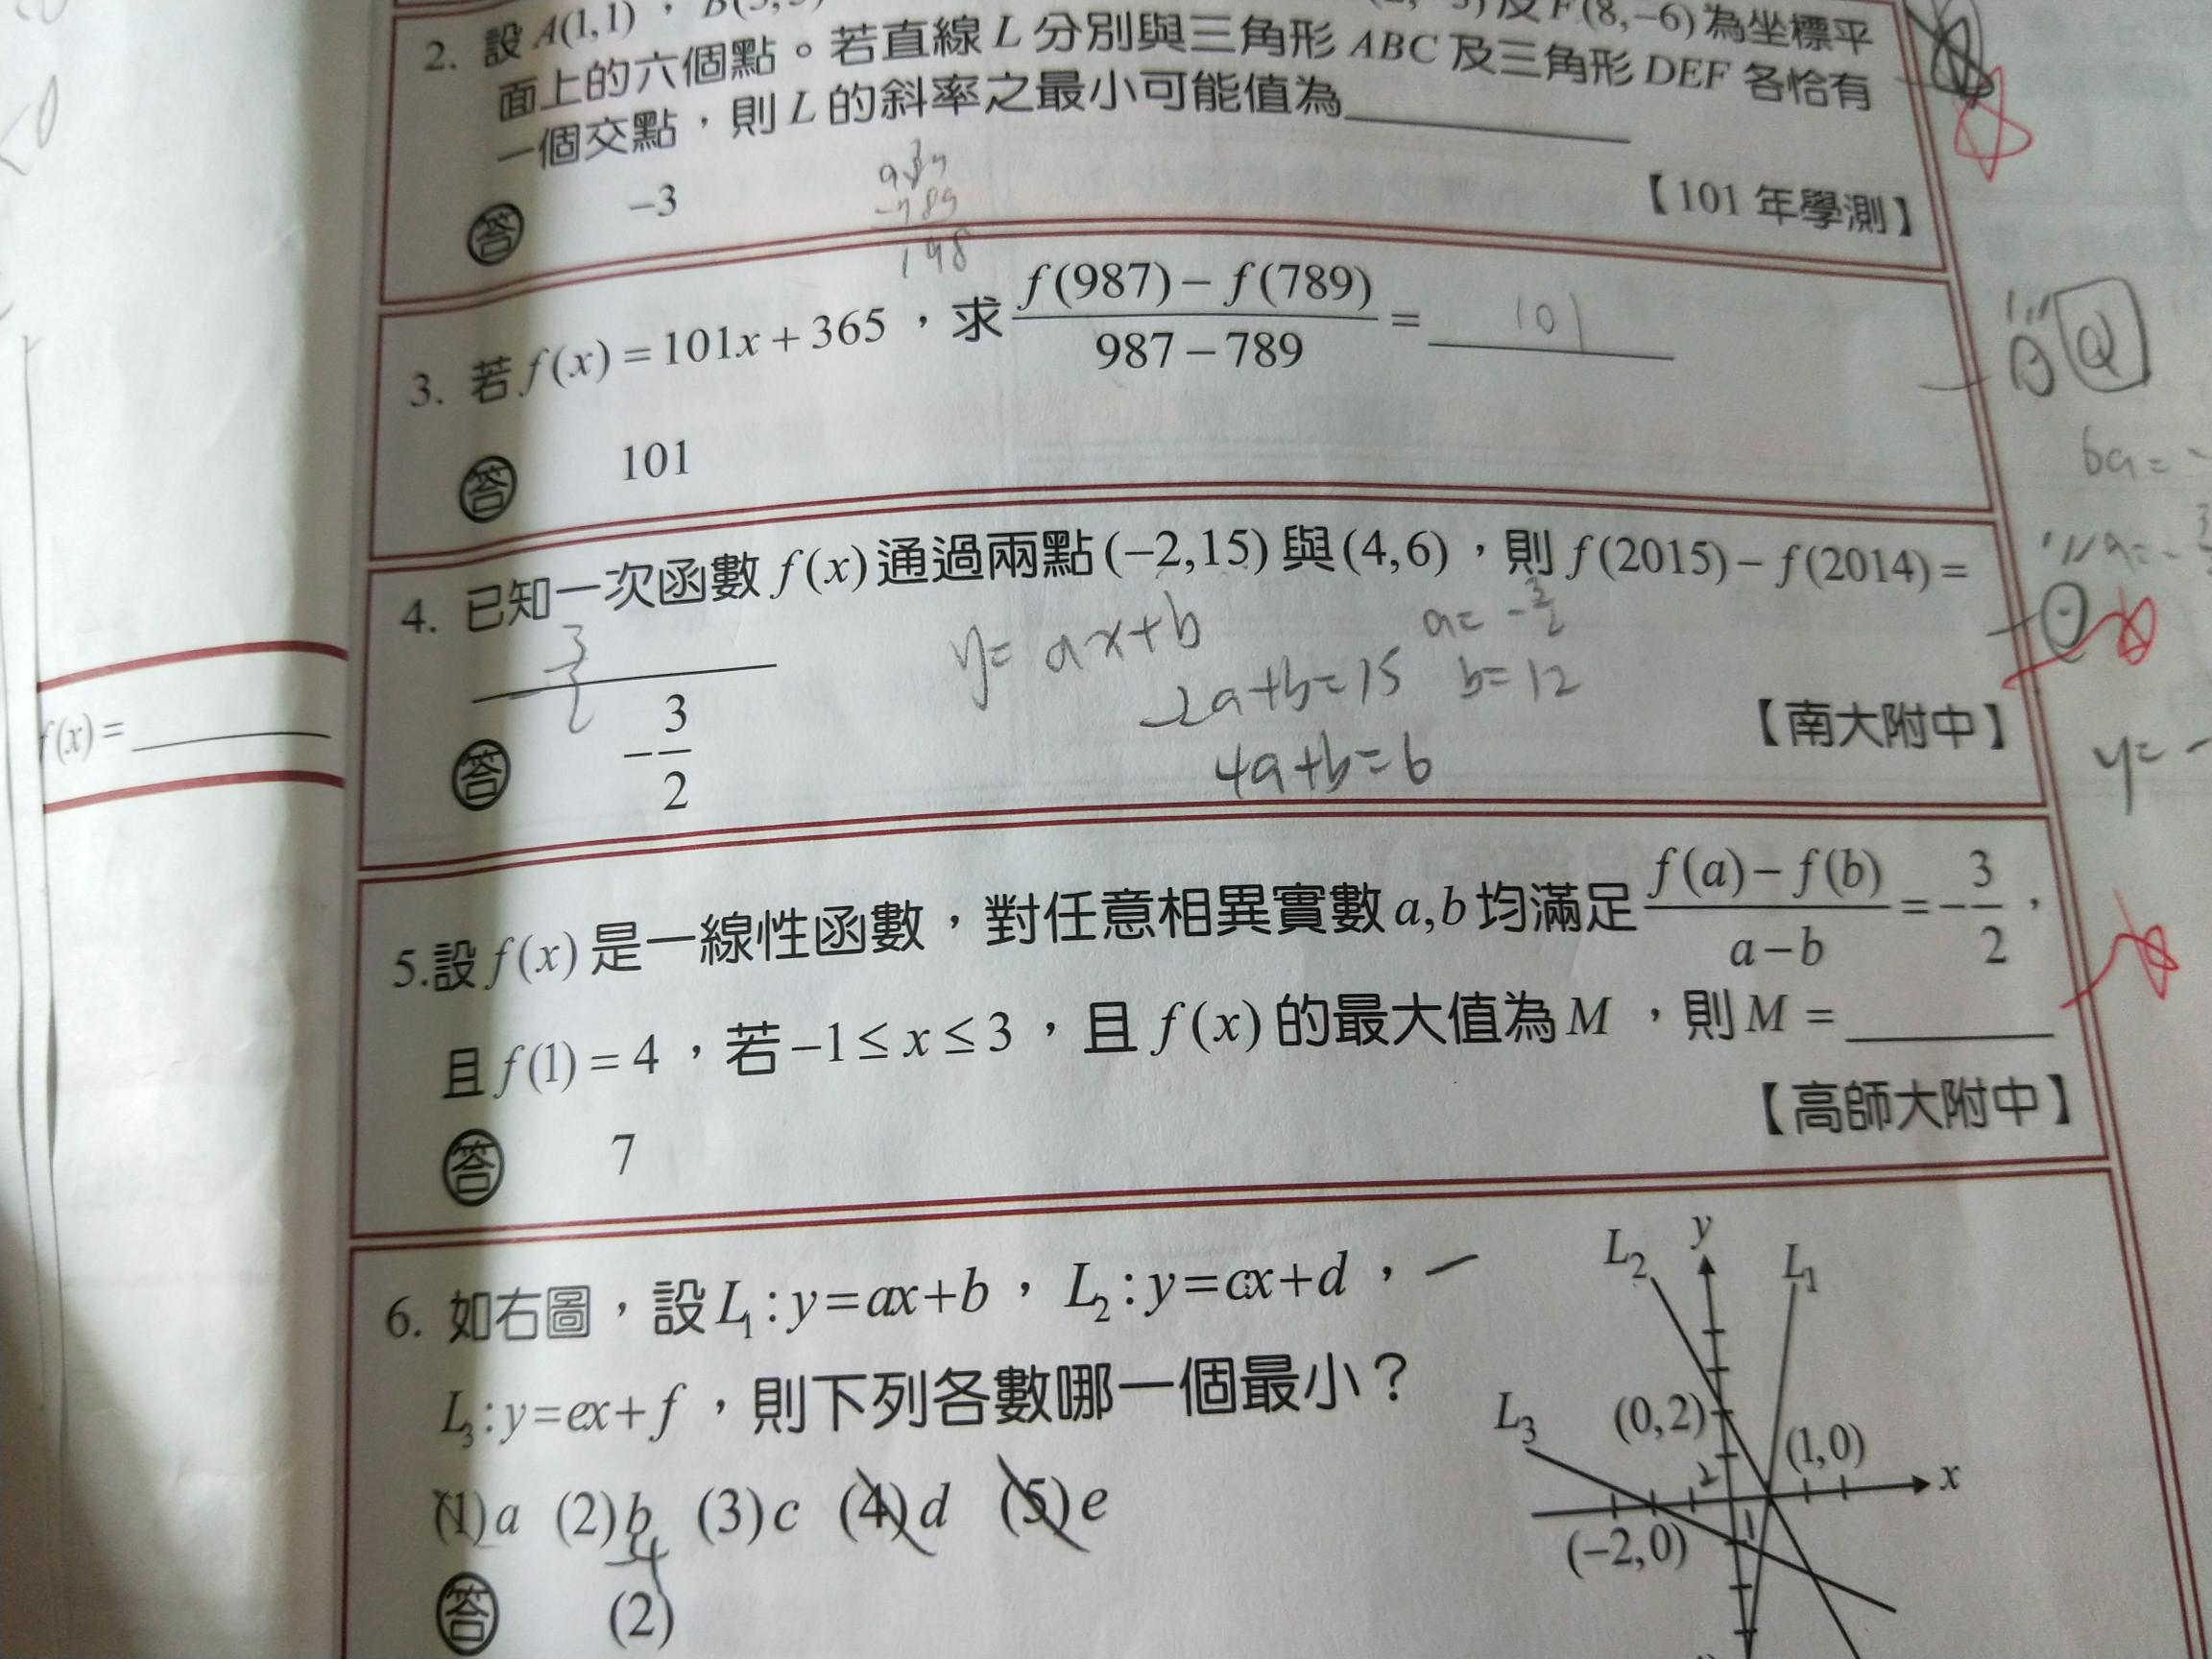 2. 設 A(1,1)，B( 及 F(8,−6) 為坐標平
面上的六個點。若直線 L 分別與三角形 ABC 及三角形 DEF 各恰有
一個交點，則 L 的斜率之最小可能值為
答 −3
【101 年學測】
987
−789
198
3. 若 f(x) = 101x + 365，求 \frac{f(987) − f(789)}{987 − 789} = 101
答 101
4. 已知一次函數 f(x) 通過兩點 (−2,15) 與 (4,6)，則 f(2015) − f(2014) =
−\frac{3}{2}
y = ax+b
a = −\frac{3}{2}
−2a+b=15 b=12
4a+b=6
答 −\frac{3}{2}
【南大附中】
f(x) =
5.設 f(x) 是一線性函數，對任意相異實數 a,b 均滿足 \frac{f(a) − f(b)}{a − b} = −\frac{3}{2}，
且 f(1) = 4，若 −1 ≤ x ≤ 3，且 f(x) 的最大值為 M，則 M =
【高師大附中】
答 7
6. 如右圖，設 L₁ : y=ax+b，L₂ : y=cx+d，
L₃ : y=ex+f，則下列各數哪一個最小？
(1)a (2)b (3)c (4)d (5)e
−4
答 (2)
L₂ y L₁
L₃ (0,2) (1,0) x
2
1
(−2,0)
<0
Q
6a=
a=−
y=−